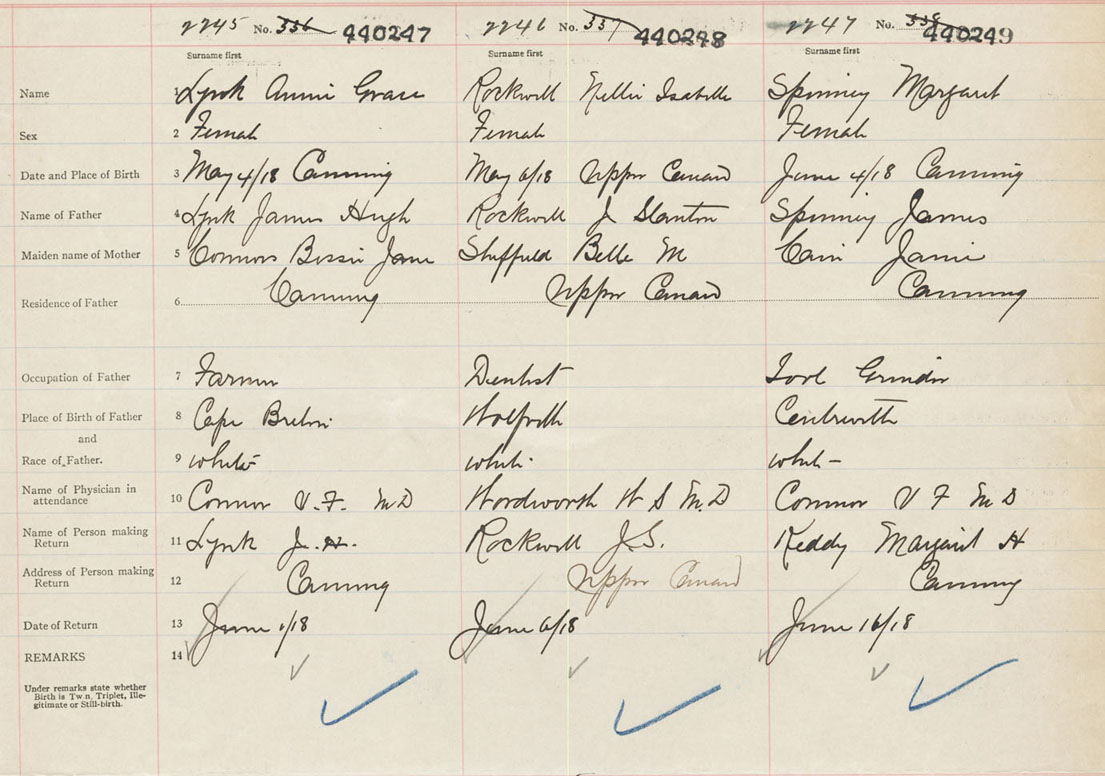 2245 No. 336 440247 2246 No. 337 440248 2247 No. 338 440249
Surname first Surname first Surname first
Name 1 Lynk Annie Grace Rockwell Nellie Isabelle Spinney Margaret
Sex 2 Female Female Female
Date and Place of Birth 3 May 4/18 Canning May 6/18 Upper Canard June 4/18 Canning
Name of Father 4 Lynk James Hugh Rockwell J Stanton Spinney James
Maiden name of Mother 5 Connors Bessie Jane Sheffield Belle M Cain Janie
Residence of Father 6 Canning Upper Canard Canning
Occupation of Father 7 Farmer Dentist Tool Grinder
Place of Birth of Father 8 Cape Breton Wolfville
and
Race of Father. 9 white white white
Name of Physician in
attendance 10 Connor V. F. M D Wordworth W S M. D Connor V F M D
Name of Person making
Return 11 Lynk J. H. Rockwell J. S. Keddy Margaret H
Address of Person making
Return 12 Canning Upper Canard Canning
Date of Return 13 June 1/18 June 6/18 June 16/18
REMARKS 14
Under remarks state whether
Birth is Tw n, Triplet, Ille-
gitimate or Still-birth.